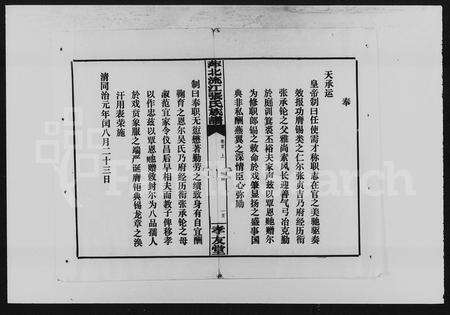 奉
天承运
皇帝制曰任使需才称职志在官之美驰驱奏
效报功膺锡类之仁尔张贞吉乃府经历衔
张承轮之父雅尚素风长迎善气弓冶克勤
于庭训箕裘丕裕夫家声兹以覃恩貤赠尔
为修职郎锡之敕命於戏肇显扬之盛事国
典非私酬燕翼之深情臣心弥励
鄂北流江張氏族譜
孝友堂
制曰奉职无愆懋著勤劳之绩致身有自宜酬
鞠育之恩尔吴氏乃府经历衔张承轮之母
淑范宜家令仪昌后早相夫而教子俾移孝
以作忠兹以覃恩貤赠彼封尔为八品孺人
於戏贲象服之端严诞膺钜典锡龙章之涣
汗用表荣施
清同治元年闰八月二十三日